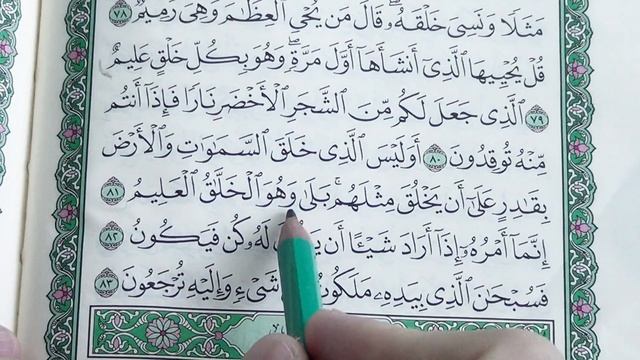 مَثَلًا وَنَسِيَ خَلْقَهُۥ ۖ قَالَ مَن يُحْيِ ٱلْعِظَـٰمَ وَهِيَ رَمِيمٌ ٧٨
قُلْ يُحْيِيهَا ٱلَّذِىٓ أَنشَأَهَآ أَوَّلَ مَرَّةٍ ۖ وَهُوَ بِكُلِّ خَلْقٍ عَلِيمٌ
٧٩ ٱلَّذِى جَعَلَ لَكُم مِّنَ ٱلشَّجَرِ ٱلْأَخْضَرِ نَارًا فَإِذَآ أَنتُم
مِّنْهُ تُوقِدُونَ ٨٠ أَوَلَيْسَ ٱلَّذِى خَلَقَ ٱلسَّمَـٰوَٰتِ وَٱلْأَرْضَ
بِقَـٰدِرٍ عَلَىٰٓ أَن يَخْلُقَ مِثْلَهُم ۚ بَلَىٰ وَهُوَ ٱلْخَلَّـٰقُ ٱلْعَلِيمُ ٨١
إِنَّمَآ أَمْرُهُۥٓ إِذَآ أَرَادَ شَيْـًٔا أَن لَهُۥ كُن فَيَكُونُ ٨٢
فَسُبْحَـٰنَ ٱلَّذِى بِيَدِهِۦ مَلَكُوتُ شَىْءٍ وَإِلَيْهِ تُرْجَعُونَ ٨٣